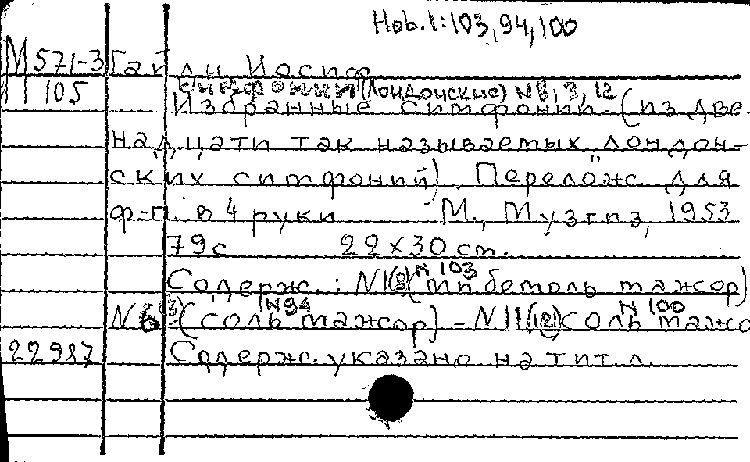 Hob. I: 103, 94, 100
М 571-3 Гайдн Иосиф
105 Симфонии (Лондонские) N 8, 3, 12
Избранные симфонии (из две-
надцати так называемых "лондон-
ских симфоний). Перелож. для
ф-п. в 4 руки М., Музгиз, 1953
79 с 22×30 см.
N 103
Содерж.: N1(8) (ми бемоль мажор)
N 94 N 100
N6 (3) (соль мажор) - N11(12) соль мажо
22987 Содерж. указано на тит. л.